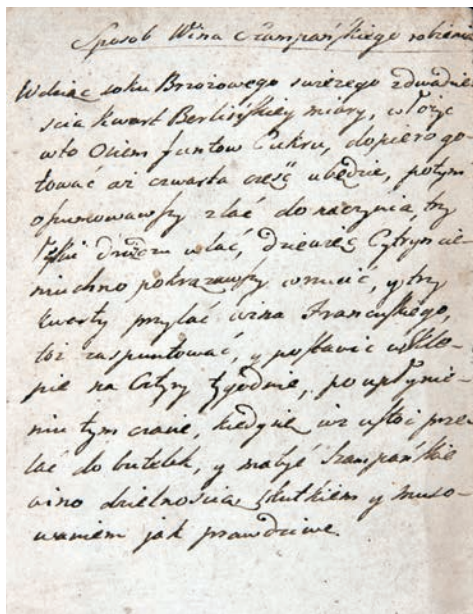 Sposob Wina Szampańskiego robienia
Wdziąc soku Brzozowego swieżego zdwadzie-
scia kwart Berlińskiey miary, włożyc
wto Osiem funtow Cukru, dopiero go-
tować aż czwarta cześć ubędzie, potym
zlać do naczynia, try
łyszki drożdzy wlać, dziewięc Cytryn cie-
niuchno pokrazawszy wrzucić, y try
kwarty przylać wina Francuskiego,
toż zaszpuntować, y postawić wSkle-
pie na Cztyry tygodnie, po upłynie-
niu tym czasie, kiedy się iuż ustoi prze-
lać do butelek, y ma być Szampańskie
wino dzielnoscią skutkiem y muso-
waniem jak prawdziwe.